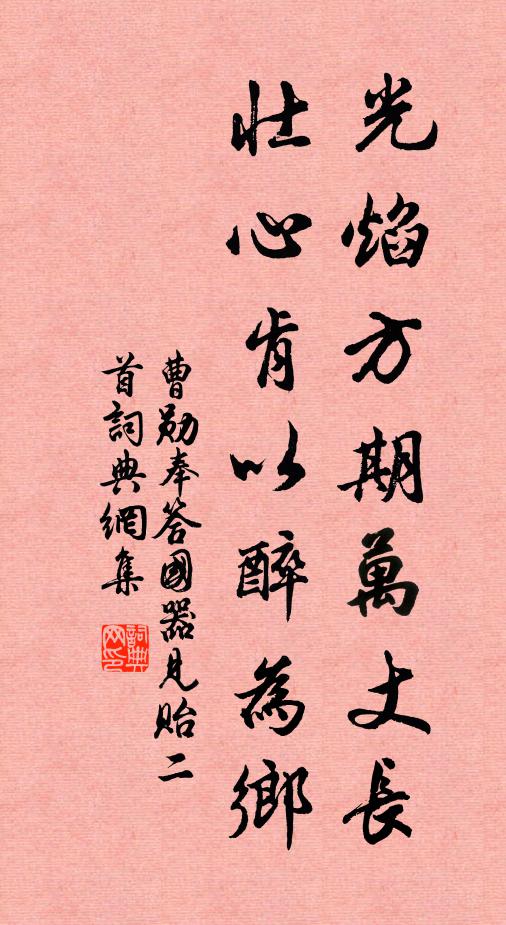 光焰方期萬丈長
壯心肯以醉為鄉
曹勛奉答國器見貽二
首詞典網集
詞典网印